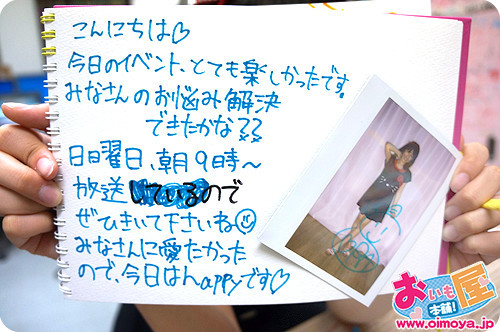 こんにちは♡
今日のイベント、とても楽しかったです。
みなさんのお悩み解決
できたかな??
日曜日、朝9時〜
放送しているので
ぜひきいて下さいね
みなさんに愛たかった
ので、今日はhappyです♡
おいも屋
本舗!
www.oimoya.jp